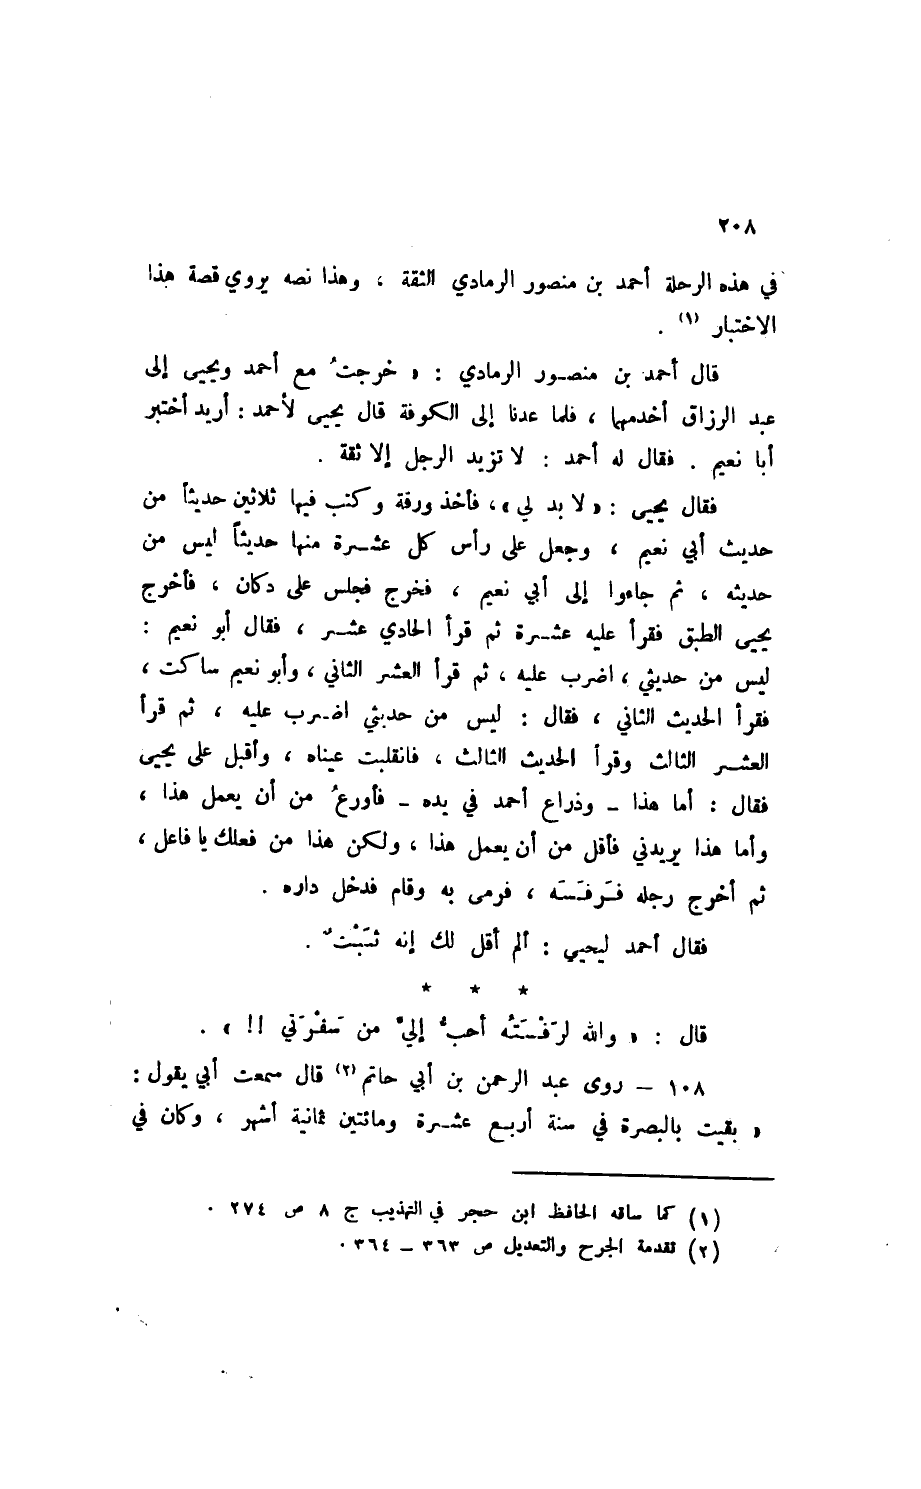 ٢٠٨
في هذه الرحلة أحمد بن منصور الرمادي الثقة ، وهذا نصه يروي قصة هذا
الاختبار (١) .
قال أحمد بن منصور الرمادي : « خرجتُ مع أحمد ويحيى إلى
عبد الرزاق أخدمهما ، فلما عدنا إلى الكوفة قال يحيى لأحمد : أريد أختبر
أبا نعيم . فقال له أحمد : لا تزيد الرجل إلا ثقة .
فقال يحيى : « لا بد لي » ، فأخذ ورقة وكتب فيها ثلاثين حديثاً من
حديث أبي نعيم ، وجعل على رأس كل عشرة منها حديثاً ليس من
حديثه ، ثم جاءوا إلى أبي نعيم ، فخرج فجلس على دكان ، فأخرج
يحيى الطبق فقرأ عليه عشرة ثم قرأ الحادي عشر ، فقال أبو نعيم :
ليس من حديثي ، اضرب عليه ، ثم قرأ العشر الثاني ، وأبو نعيم ساكت ،
فقرأ الحديث الثاني ، فقال : ليس من حديثي اضرب عليه ، ثم قرأ
العشر الثالث وقرأ الحديث الثالث ، فانقلبت عيناه ، وأقبل على يحيى
فقال : أما هذا – وذراع أحمد في يده – فأورعُ من أن يعمل هذا ،
وأما هذا يريدني فأقل من أن يعمل هذا ، ولكن هذا من فعلك يا فاعل ،
ثم أخرج رجله فَرَفَسَه ، فرمى به وقام فدخل داره .
فقال أحمد ليحيي : ألم أقل لك إنه ثَبْتٌ .
* * *
قال : « والله لرَفْسَتُه أحبُّ إليّ من سَفْرَتي !! » .
١٠٨ – روى عبد الرحمن بن أبي حاتم (٢) قال سمعت أبي يقول :
« بقيت بالبصرة في سنة أربع عشرة ومائتين ثمانية أشهر ، وكان في
(١) كما ساقه الحافظ ابن حجر في التهذيب ج ٨ ص ٢٧٤ .
(٢) تقدمة الجرح والتعديل ص ٣٦٣ – ٣٦٤ .